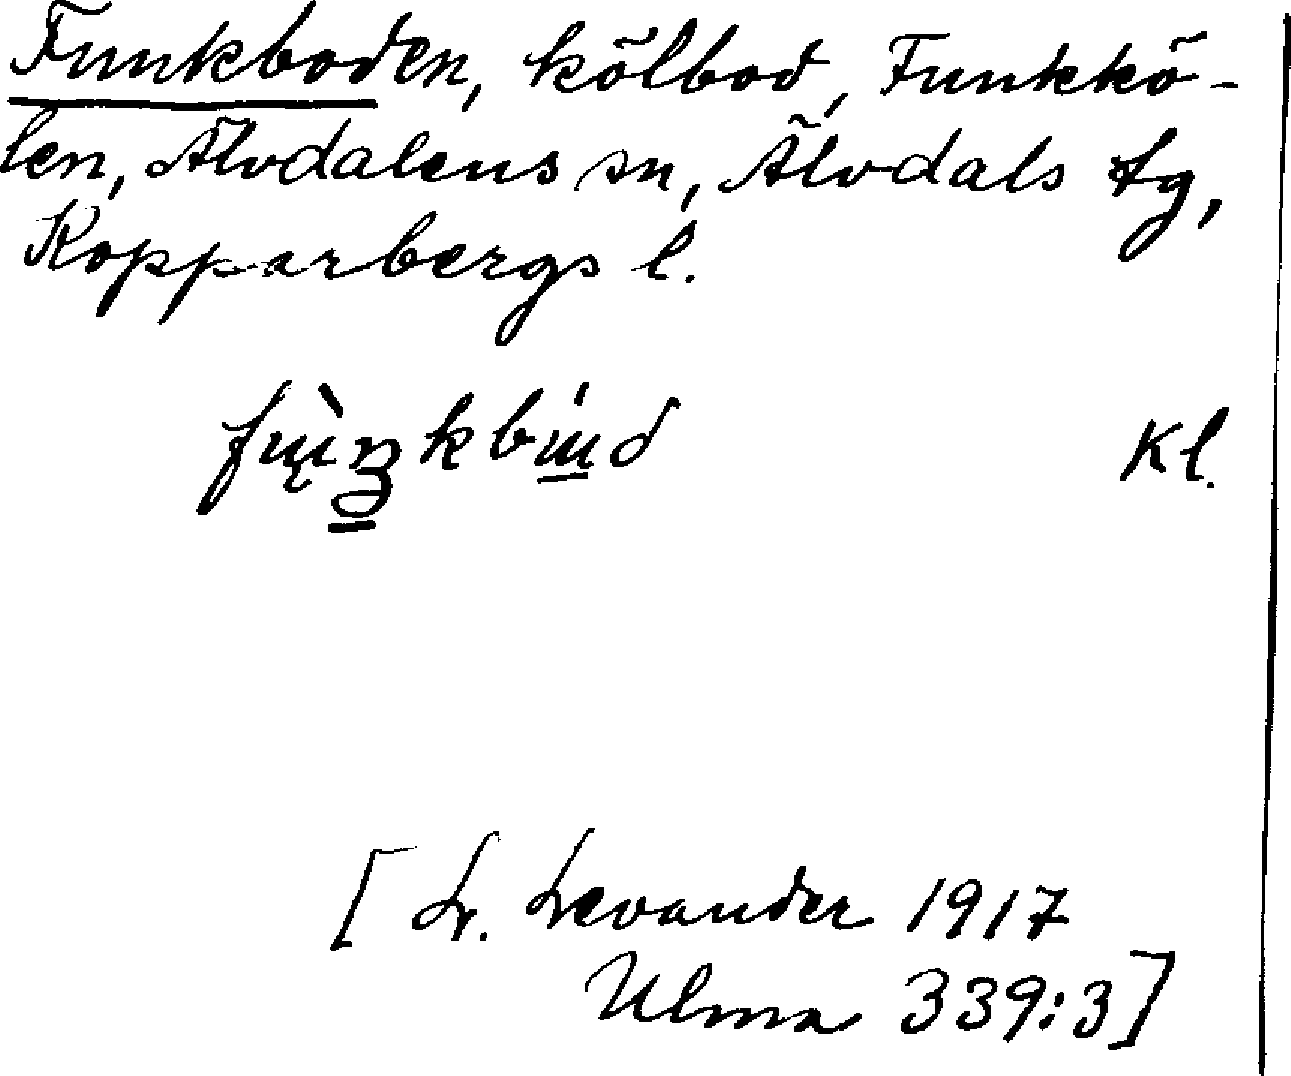 Funkboden, kölbod, Funkkö-
len, Älvdalens sn, Älvdals tg,
Kopparbergs l.
Kl.
[L. Levander 1917
Ulma 339:3]